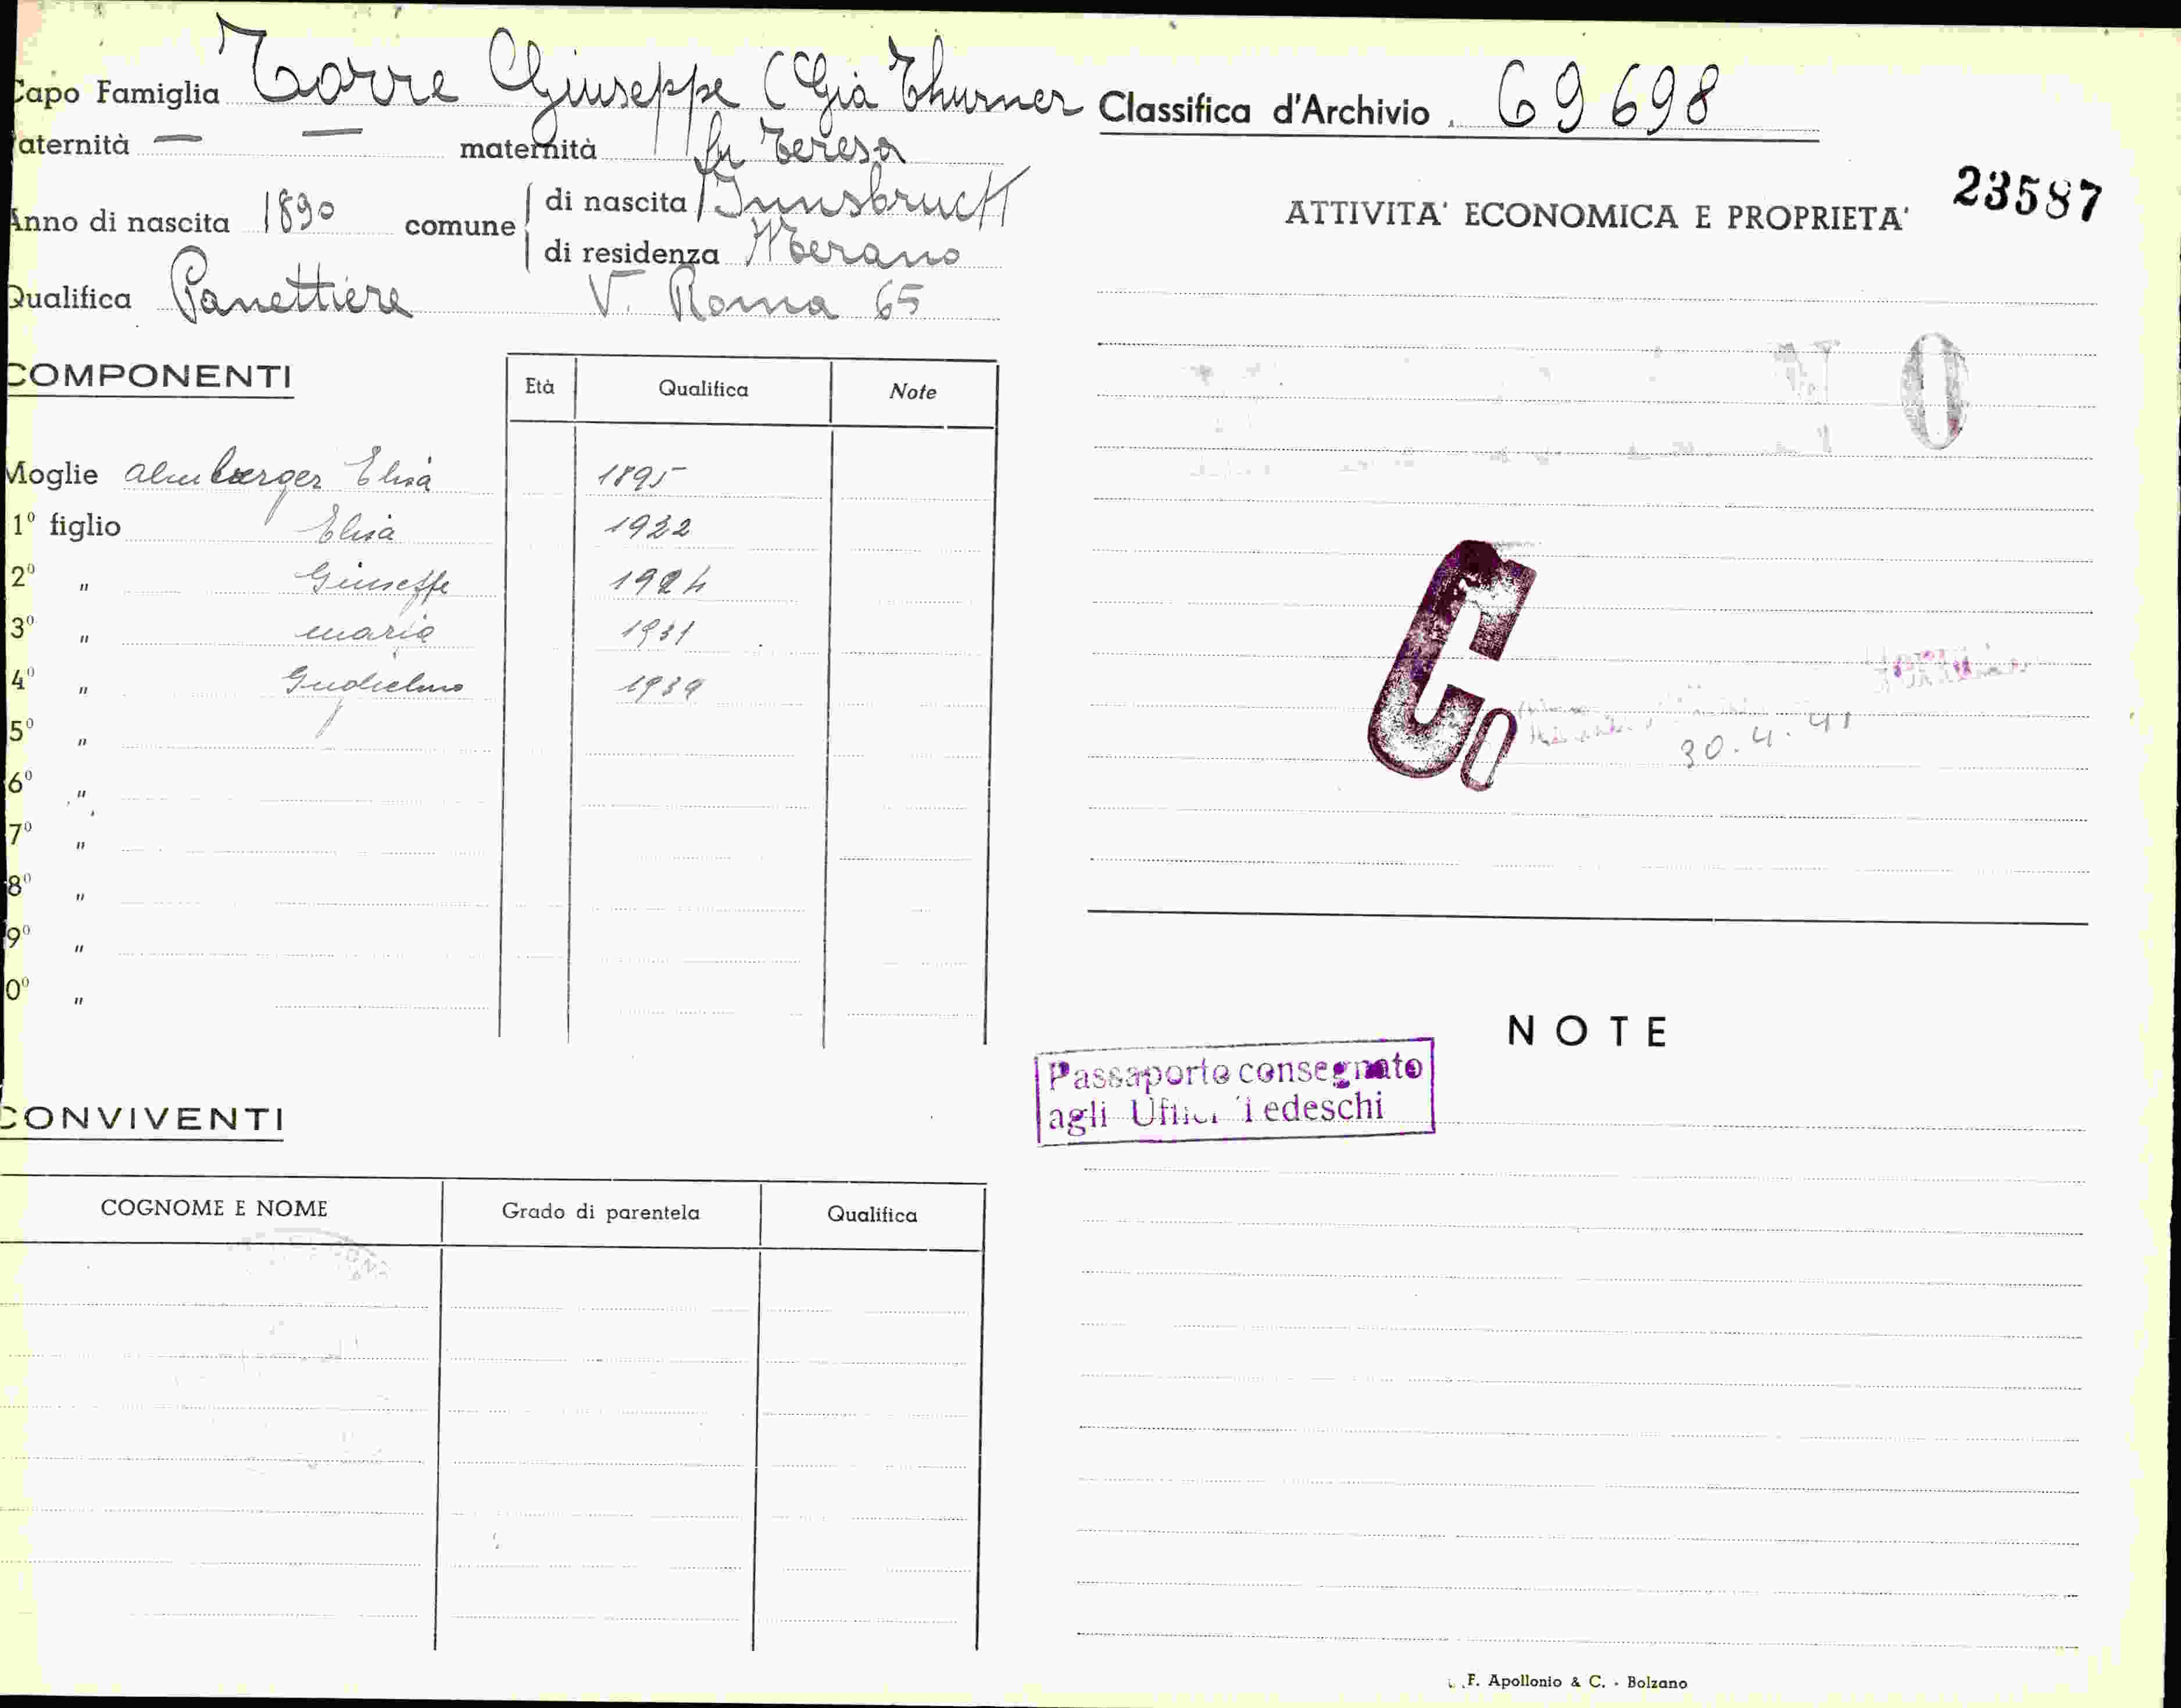 Capo Famiglia Torre Giuseppe (Già Thurner
aternità — — maternità fu Teresa
Anno di nascita 1890 comune di nascita Innsbruck
di residenza Merano
Qualifica Panettiere V. Roma 65
COMPONENTI
Età Qualifica Note
Moglie Elisa 1895
1º figlio Elisa 1922
2º " Giuseppe 1924
3º " Maria 1931
4º " Guglielmo 1939
5º "
6º "
7º "
8º "
9º "
0º "
CONVIVENTI
COGNOME E NOME Grado di parentela Qualifica
Classifica d'Archivio 69698
23587
ATTIVITA' ECONOMICA E PROPRIETA'
NO
Co
30.4.41
NOTE
Passaporto consegnato
agli Uffici Tedeschi
F. Apollonio & C. - Bolzano